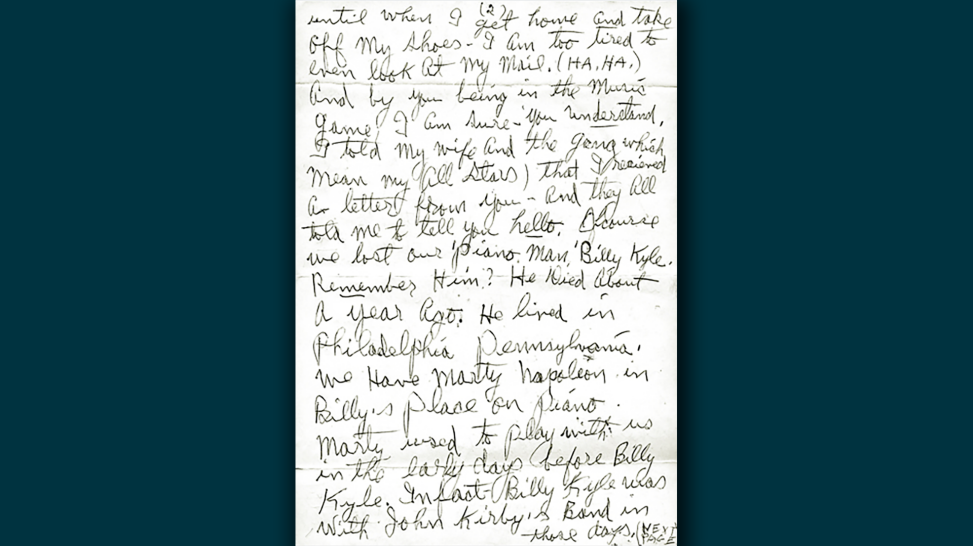 (2)
until when I get home and take
off my shoes - I am too tired to
even look at my mail. (HA. HA.)
And by you being in the music
game, I am sure - you understand.
I told my wife and the gang which
mean my All Stars) that I recieved
a letter from you - and they all
told me to tell you hello. Ofcourse
we lost our 'piano Man,' Billy Kyle.
Remember Him? He Died About
A year Ago. He lived in
Philadelphia Pennsylvania.
We Have Marty Napoleon in
Billy,s place on piano.
Marty used to play with us
in the early days before Billy
Kyle. Infact - Billy Kyle was
with John Kirby,s Band in
those days. (NEXT
PAGE